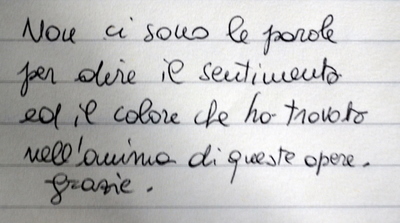 Non ci sono le parole
per dire il sentimento
ed il colore che ho trovato
nell'anima di queste opere.
grazie.